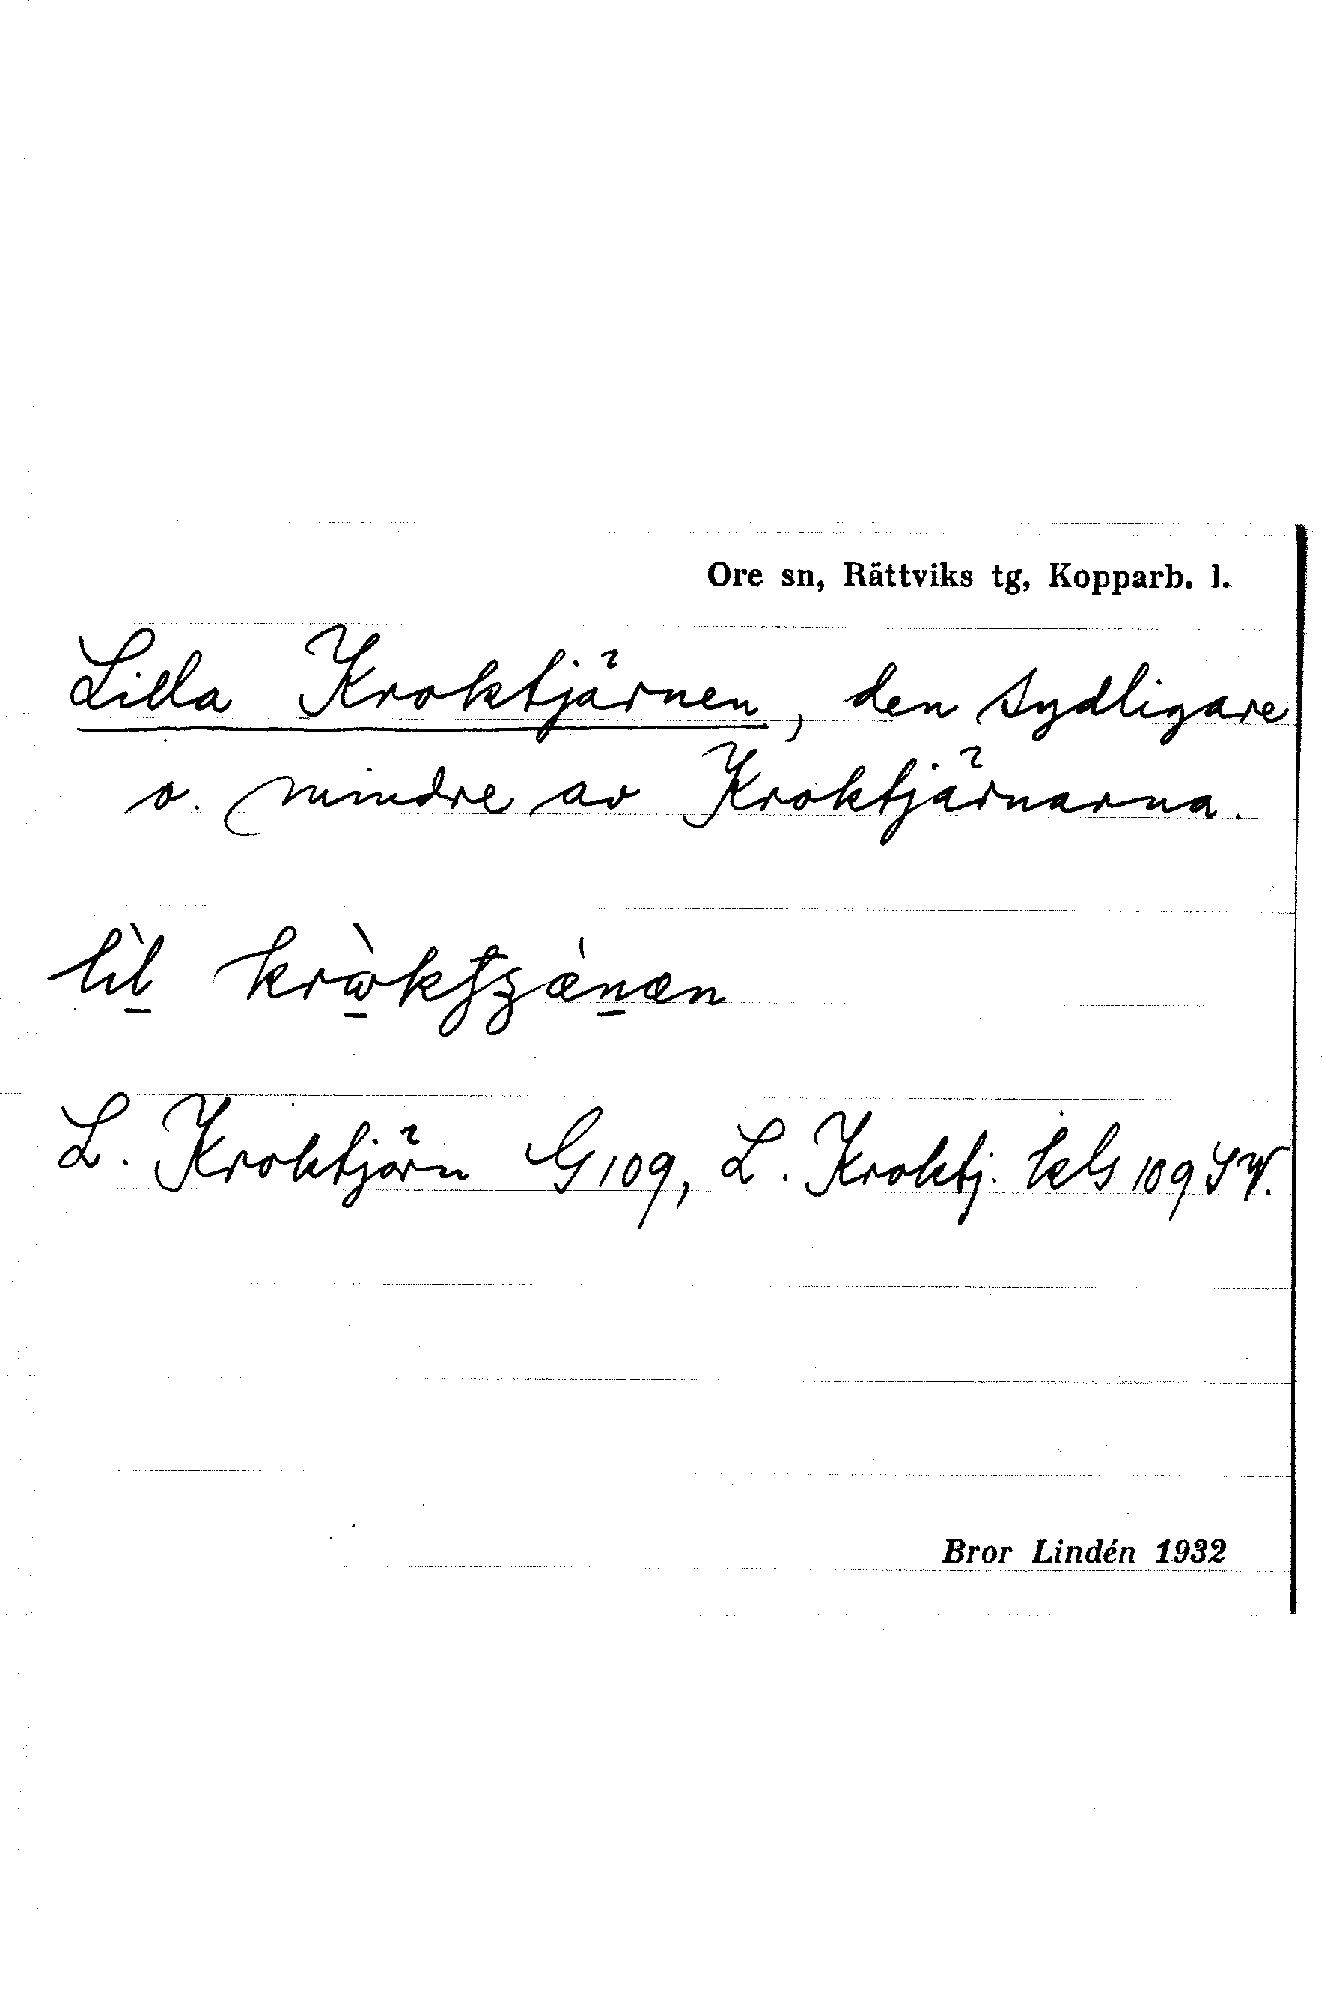 Ore sn, Rättviks tg, Kopparb. l.
Lilla Kroktjärnen, den sydligare
o. mindre av Kroktjärnarna.
lìl
L. Kroktjärn G 109, L. Kroktj. kls 109 SV.
Bror Lindén 1932